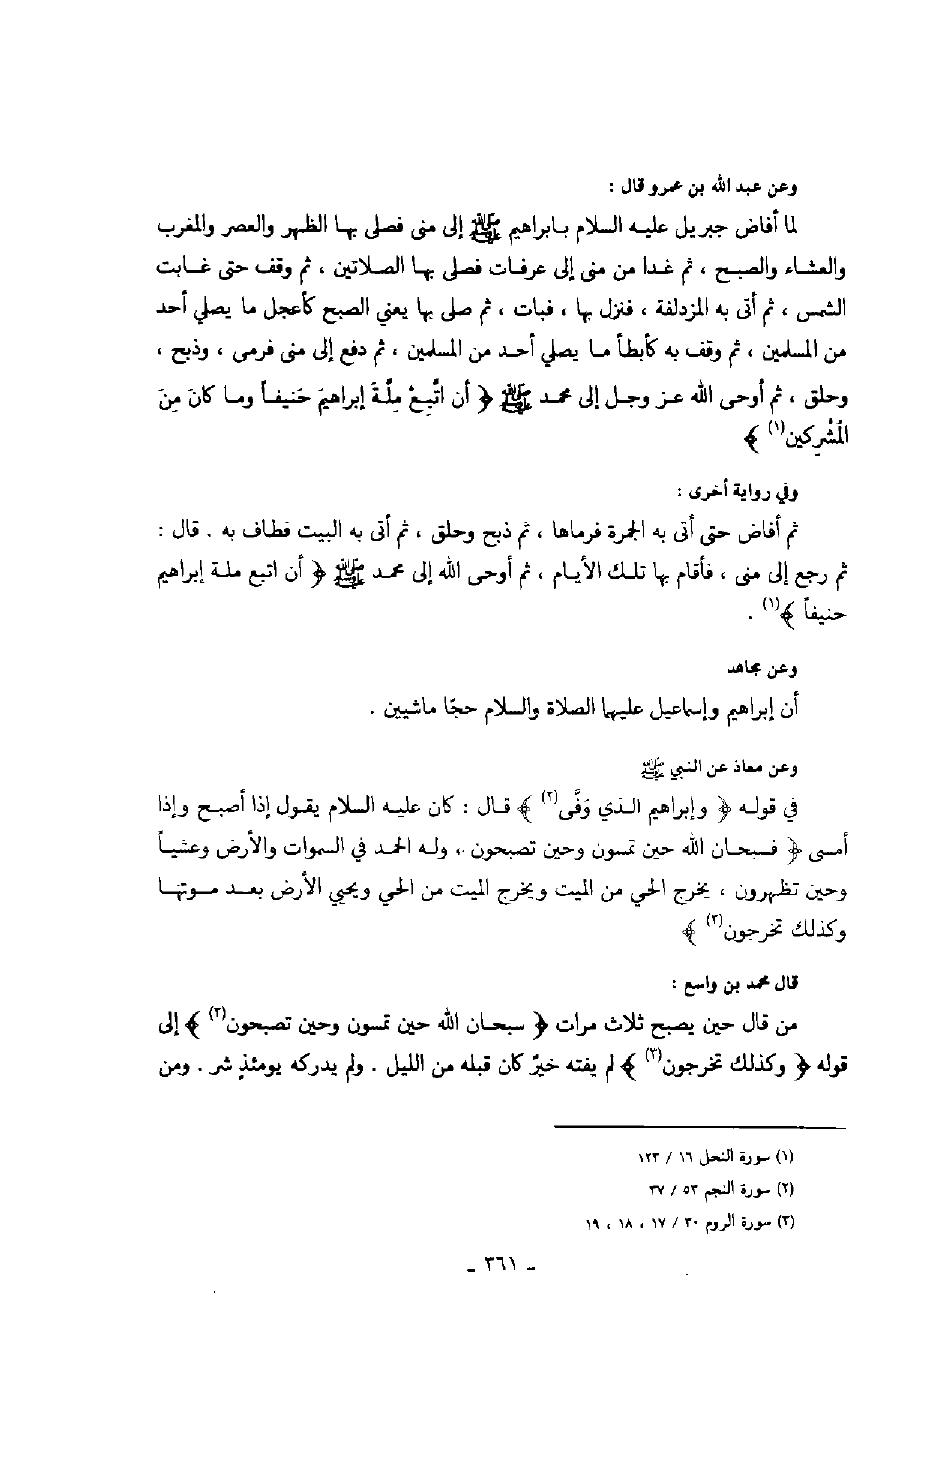 وعن عبد الله بن عمرو قال :
لما أفاض جبريل عليه السلام بابراهيم ﷺ إلى منى فصلى بها الظهر والعصر والمغرب
والعشاء والصبح ، ثم غدا من منى إلى عرفات فصلى بها الصلاتين ، ثم وقف حتى غابت
الشمس ، ثم أتى به المزدلفة ، فنزل بها ، فبات ، ثم صلى بها يعني الصبح كأعجل ما يصلي أحد
من المسلمين ، ثم وقف به كأبطأ ما يصلي أحد من المسلمين ، ثم دفع إلى منى فرمى ، وذبح ،
وحلق ، ثم أوحى الله عز وجل إلى محمد ﷺ ﴿ أن اتَّبِعْ مِلَّةَ إبراهيمَ حَنيفاً وما كانَ مِنَ
المُشْرِكين(١) ﴾
وفي رواية أخرى :
ثم أفاض حتى أتى به الجمرة فرماها ، ثم ذبح وحلق ، ثم أتى به البيت فطاف به . قال :
ثم رجع إلى منى ، فأقام بها تلك الأيام ، ثم أوحى الله إلى محمد ﷺ ﴿ أن اتبع ملة إبراهيم
حنيفاً ﴾(١) .
وعن مجاهد
أن إبراهيم وإسماعيل عليهما الصلاة والسلام حجّا ماشيين .
وعن معاذ عن النبي ﷺ
في قوله ﴿ وإبراهيم الذي وَفَّى(٢) ﴾ قال : كان عليه السلام يقول إذا أصبح وإذا
أمسى ﴿ فسبحان الله حين تمسون وحين تصبحون ، وله الحمد في السموات والأرض وعشياً
وحين تظهرون ، يخرج الحي من الميت ويخرج الميت من الحي ويحيي الأرض بعد موتها
وكذلك تخرجون(٣) ﴾
قال محمد بن واسع :
من قال حين يصبح ثلاث مرات ﴿ سبحان الله حين تمسون وحين تصبحون(٣) ﴾ إلى
قوله ﴿ وكذلك تخرجون(٣) ﴾ لم يفته خيرٌ كان قبله من الليل . ولم يدركه يومئذٍ شر . ومن
(١) سورة النحل ١٦ / ١٢٣
(٢) سورة النجم ٥٣ / ٣٧
(٣) سورة الروم ٣٠ / ١٧ ، ١٨ ، ١٩
- ٣٦١ -